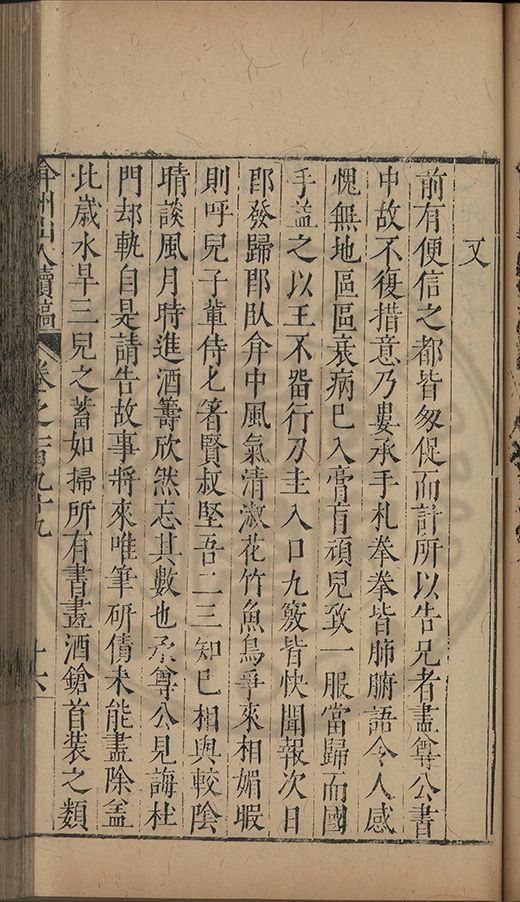 又
前有便信之都皆匆促而計所以告兄者盡尊公書
中故不復措意乃婁承手札拳拳皆肺腑語令人感
愧無地區區衰病已入膏肓頑兒致一服當歸而國
手益之以王不畱行刀圭入口九竅皆快聞報次日
郎發歸郎臥弇中風氣清淑花竹魚鳥爭來相媚暇
則呼兒子輩侍匕箸賢叔堅吾二三知已相與較陰
晴談風月時進酒籌欣然忘其數也承尊公見誨杜
門却軌自是請告故事將來唯筆研債未能盡除盖
比歲水旱三兒之蓄如掃所有書畫酒鎗首裝之類
弇州山人續稿 卷之一百九十九 十六